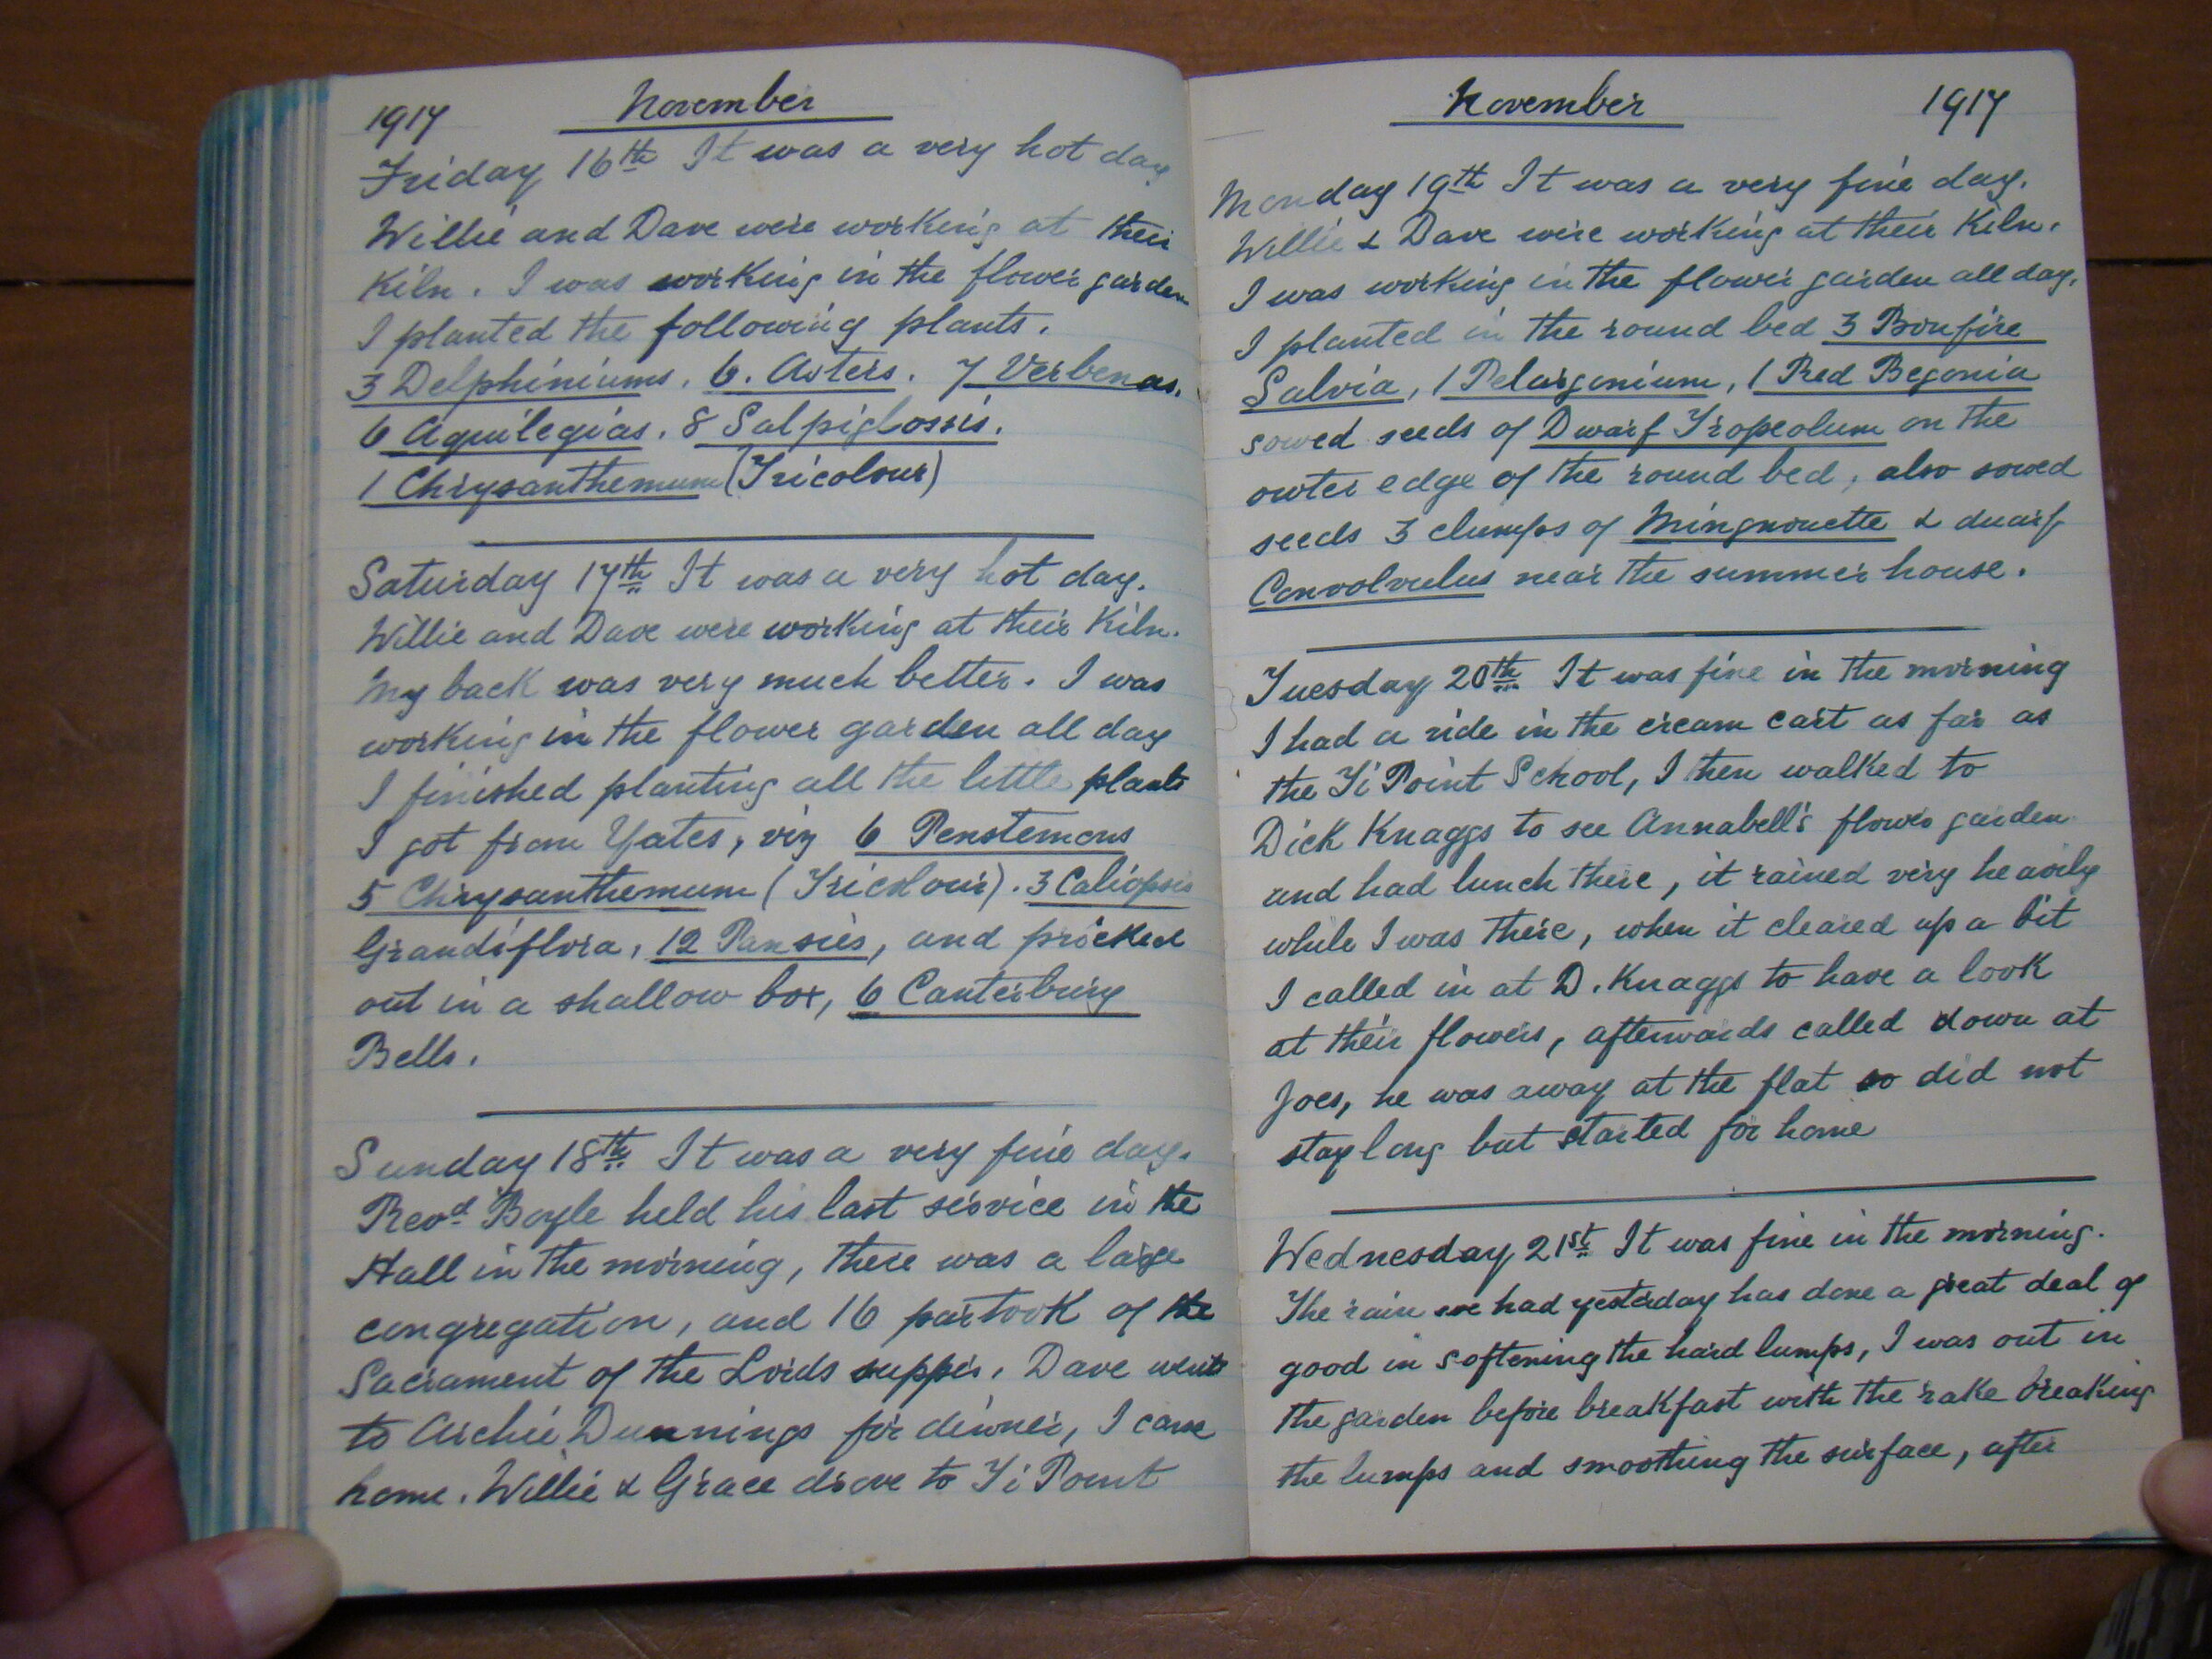 1917 November
Friday 16th It was a very hot day
Willie and Dave were working at their
Kiln. I was working in the flower garden
I planted the following plants.
3 Delphiniums. 6. Asters. 7 Verbenas.
6 Aquilegias. 8 Salpiglossis.
1 Chrysanthemum (Tricolour)
Saturday 17th It was a very hot day.
Willie and Dave were working at their Kiln.
My back was very much better. I was
working in the flower garden all day
I finished planting all the little plants
I got from Yates, viz 6 Penstemons
5 Chrysanthemum (Tricolour). 3 Caliopsis
Grandiflora, 12 Pansies, and pricked
out in a shallow box, 6 Canterbury
Bells.
Sunday 18th It was a very fine day.
Revd Boyle held his last service in the
Hall in the morning, there was a large
congregation, and 16 partook of the
Sacrament of the Lords supper. Dave went
to Archie Dunnings for dinner, I came
home. Willie & Grace drove to Ti Point
November 1917
Monday 19th It was a very fine day.
Willie & Dave were working at their Kiln.
I was working in the flower garden all day.
I planted in the round bed 3 Bonfire
Salvia, 1 Pelargonium, 1 Red Begonia
sowed seeds of Dwarf Tropeolum on the
outer edge of the round bed, also sowed
seeds 3 clumps of Mingnonette & dwarf
Convolvulus near the summer house.
Tuesday 20th It was fine in the morning
I had a ride in the cream cart as far as
the Ti Point School, I then walked to
Dick Knaggs to see Annabell's flower garden
and had lunch there, it rained very heavily
while I was there, when it cleared up a bit
I called in at D. Knaggs to have a look
at their flowers, afterwards called down at
Joes, he was away at the flat so did not
stay long but started for home
Wednesday 21st It was fine in the morning.
The rain we had yesterday has done a great deal of
good in softening the hard lumps, I was out in
the garden before breakfast with the rake breaking
the lumps and smoothing the surface, after